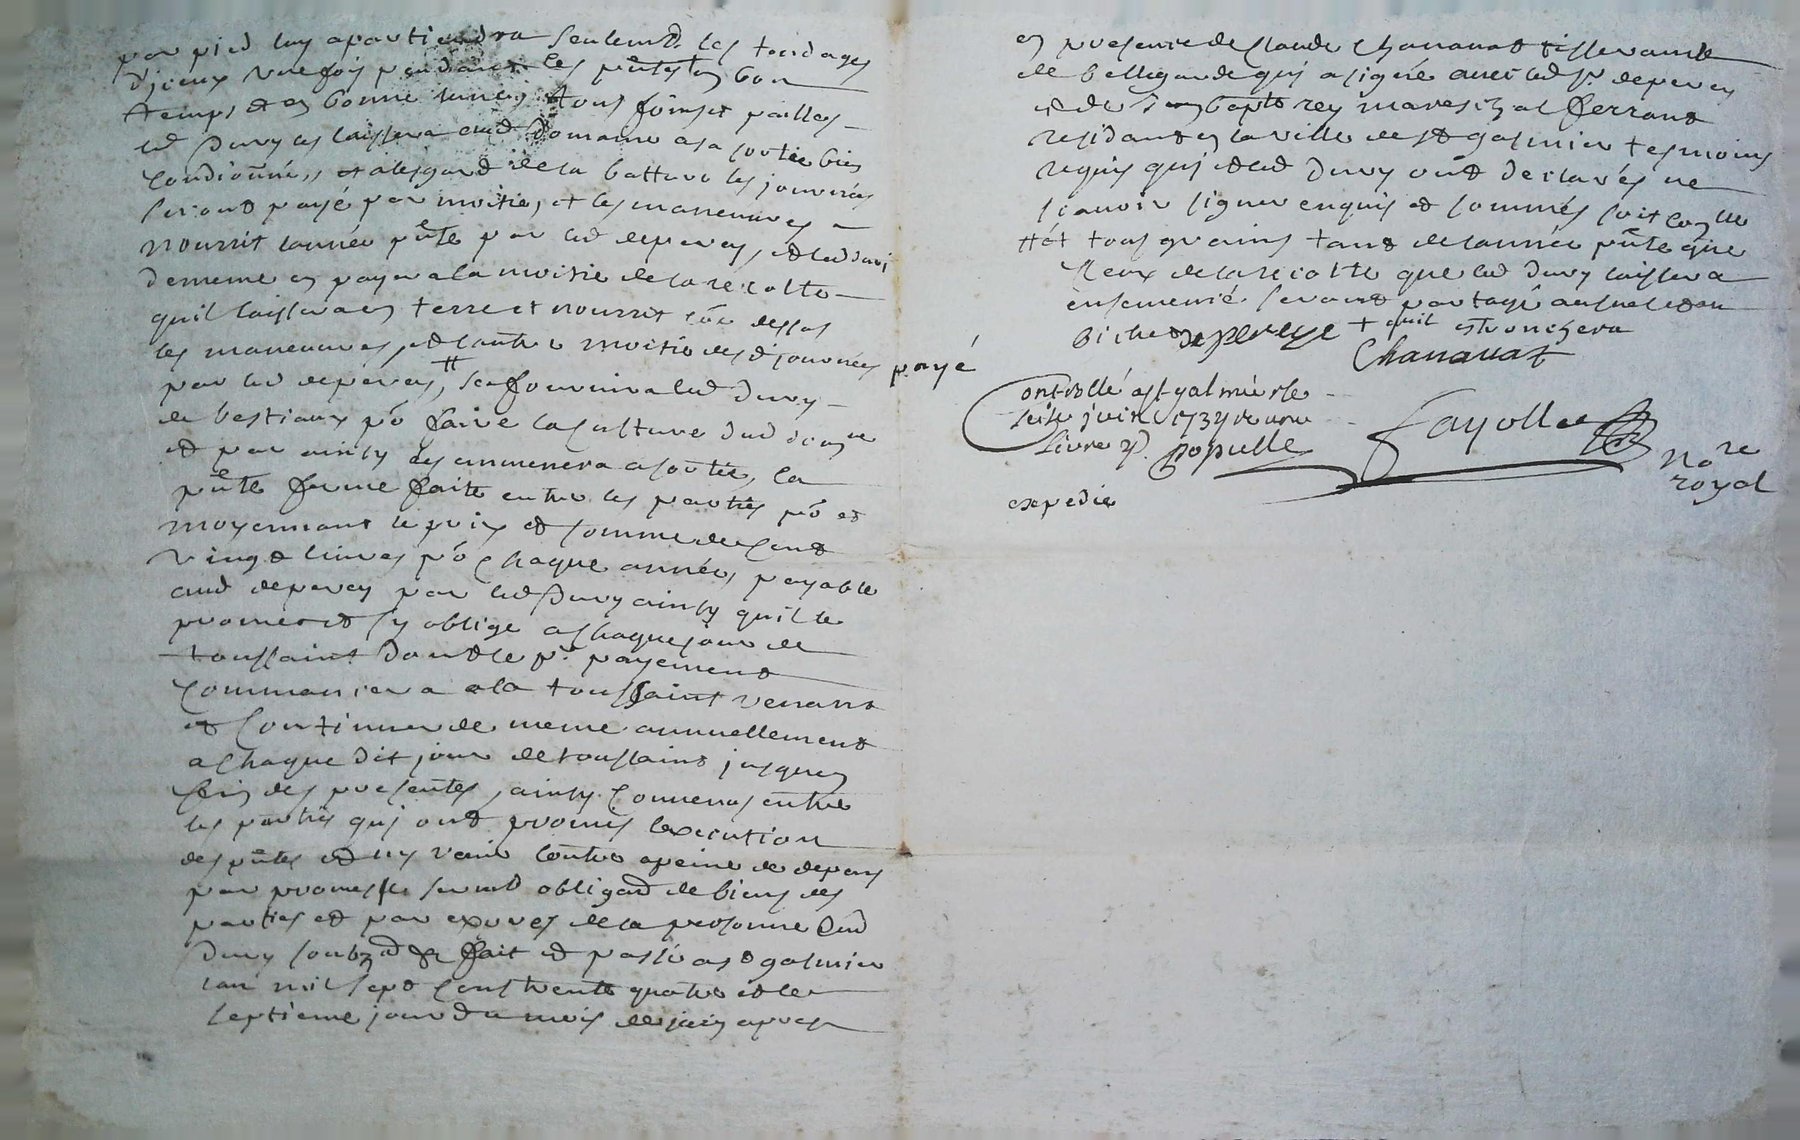 par pied luy apartiendra seulemt les tondages
d'jceux une fois pendant les pñtes en bon
temps et en bonne lune, tous foins et pailles
led Duvy les laissera aud domaine a sa sortie bien
condionñés, et a lesgard de la batture les journées
seront payé par moitié, et les maneuvres
nourrit lannée pñte par led deperey, et led Duvi
de meme en payera la moitié de la recolte
quil laissera en terre et nourrit lôr desfois
les maneuvres, et lautre moitié des journées payé
par led deperey, # se fournira led Duvy
de bestiaux pō faire la culture dud domne
et par ainsy les emmenera a sa sortie, la
pñte ferme faite entre les parties pō et
moyennant le prix et somme de cent
vingt livres pō chaque année, payable
aud deperey par led Duvy ainsy quil le
promet et sy oblige a chaque jour de
toussaint dont le pr payement
commancera a la toussaint venant
et continuer de meme annuellement
a chaque dit jour de toussaint jusquen
fin des presentes, ainsy convenus entre
les parties qui ont promis lexecution
des pñtes et ny venir contre a peine de depens
par promesses sermt obligaon de biens des
parties et par exprés de la personne dud
Duvy soubz on & fait et passé a st galmier
lan mil sept cens trente quatre et le
septieme jour du mois de juin apres
en presence de Claude Chanavat tisserand
de bellegarde qui a signé avec led sr deperey
et de Jean bapte rey mareschal ferrant
residant en la ville de st galmier tesmoins
requis qui et led Duvy ont declarés ne
scavoir signer enquis et sommés soit con lle
#et tous grains tant de lannée pñte que
ceux de la recolte que led Duvy laissera
ensemencé seront partagé au
bichet deperey + quil estronchera
Chanavat
Controllé a st galmier le
seize juin 1734 recu une
livre Populle
fayolle
nore
royal
expedié